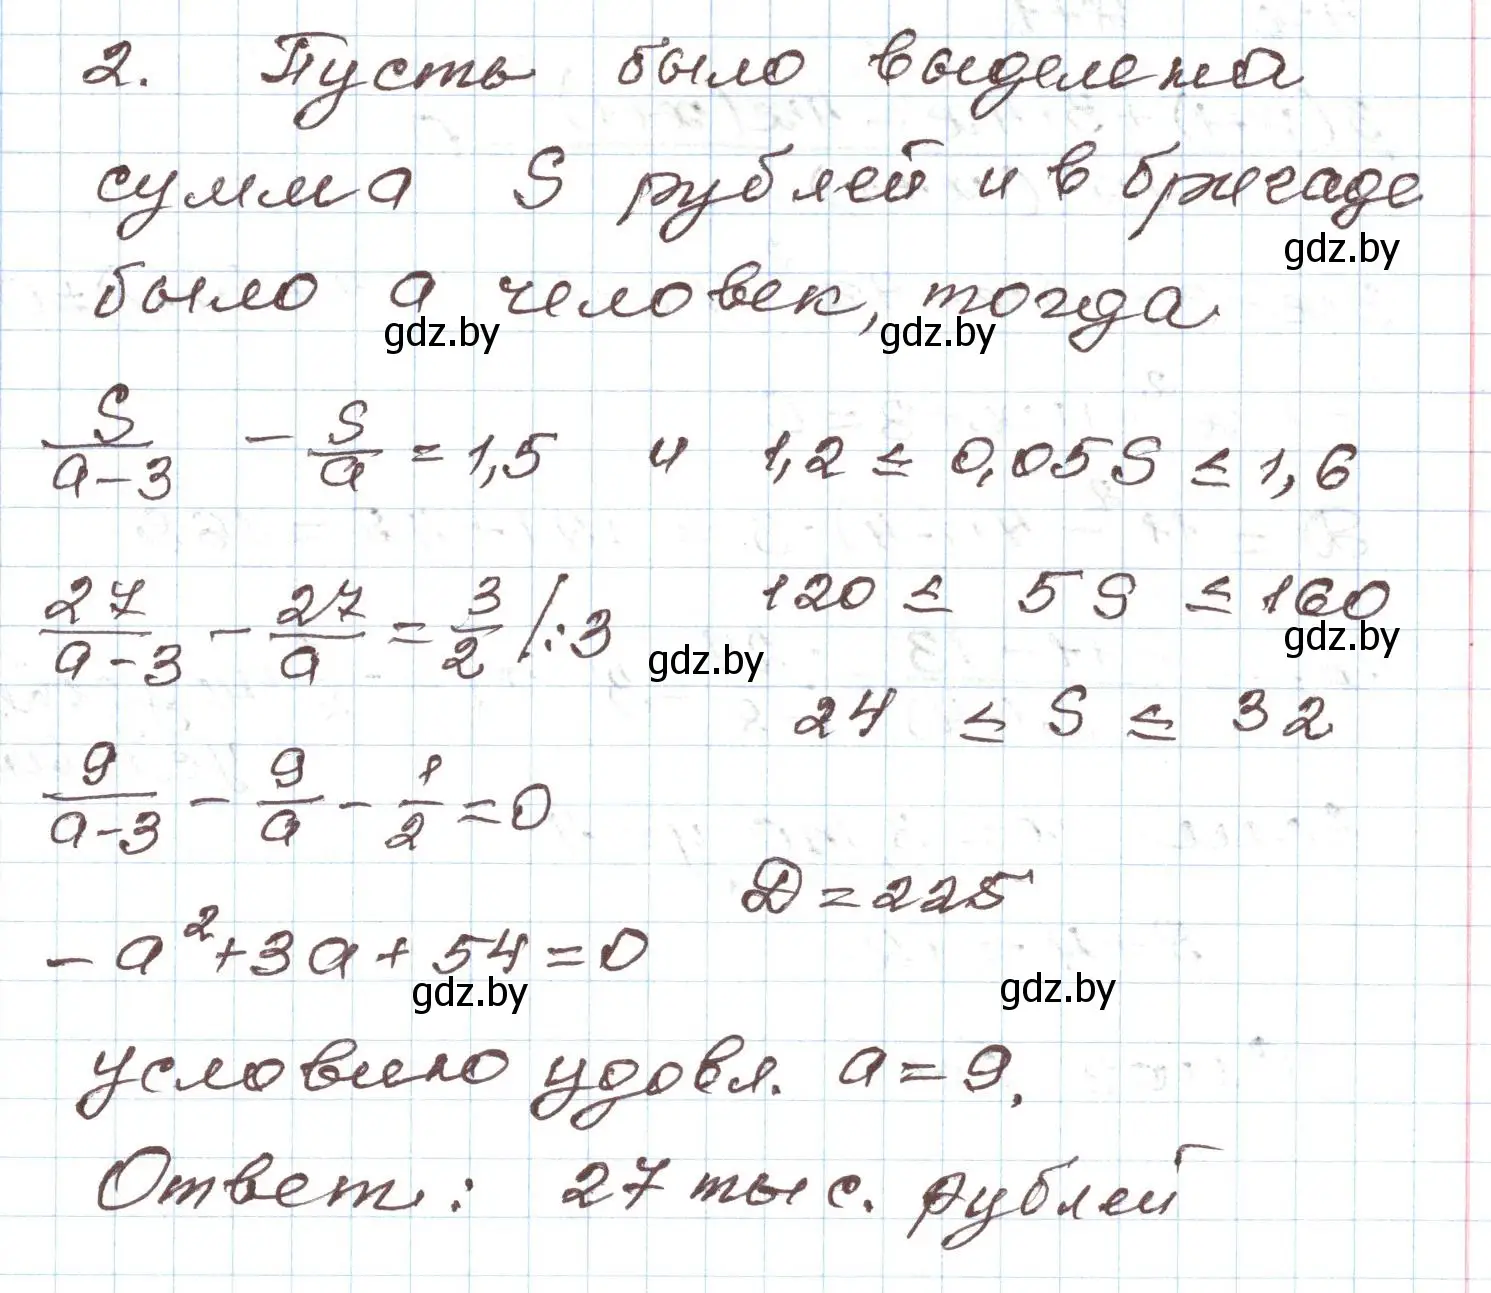 2. Пусть было выделена
сумма S рублей и в бригаде
gdz.by
было a человек, тогда
gdz.by gdz.by
S/(a-3) - S/a = 1,5 и 1,2 ≤ 0,05S ≤ 1,6
27/(a-3) - 27/a = 3/2 /:3 120 ≤ 5S ≤ 160
gdz.by gdz.by
24 ≤ S ≤ 32
9/(a-3) - 9/a - 1/2 = 0
D = 225
-a² + 3a + 54 = 0
gdz.by gdz.by
условию удовл. a = 9.
Ответ: 27 тыс. рублей